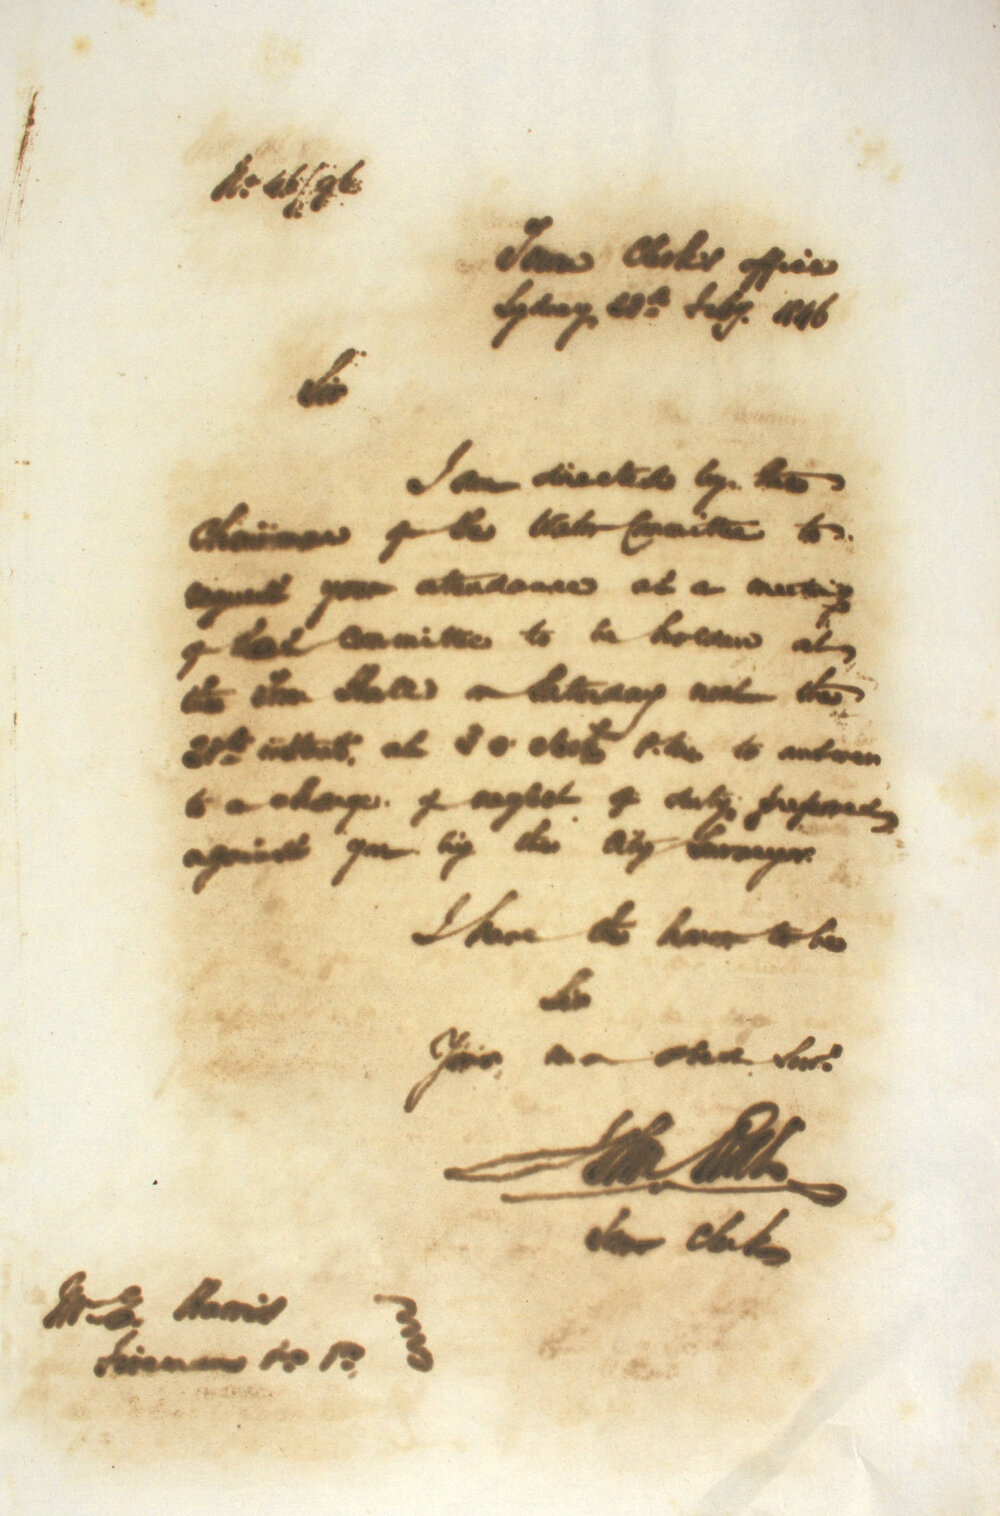 No 46/96
Town Clerk's office
Sydney 28th Feby. 1846
Sir
I am directed by the
Chairman of the Water Committee to
request your attendance at a meeting
of that Committee to be holden at
the Town Hall on Saturday next the
instant, at o'clock P.M. to answer
to a charge of neglect of duty preferred
against you by the City Surveyor.
I have the honor to be
Sir
Your mo obedt Servt
John
Town Clerk
Mr Harris